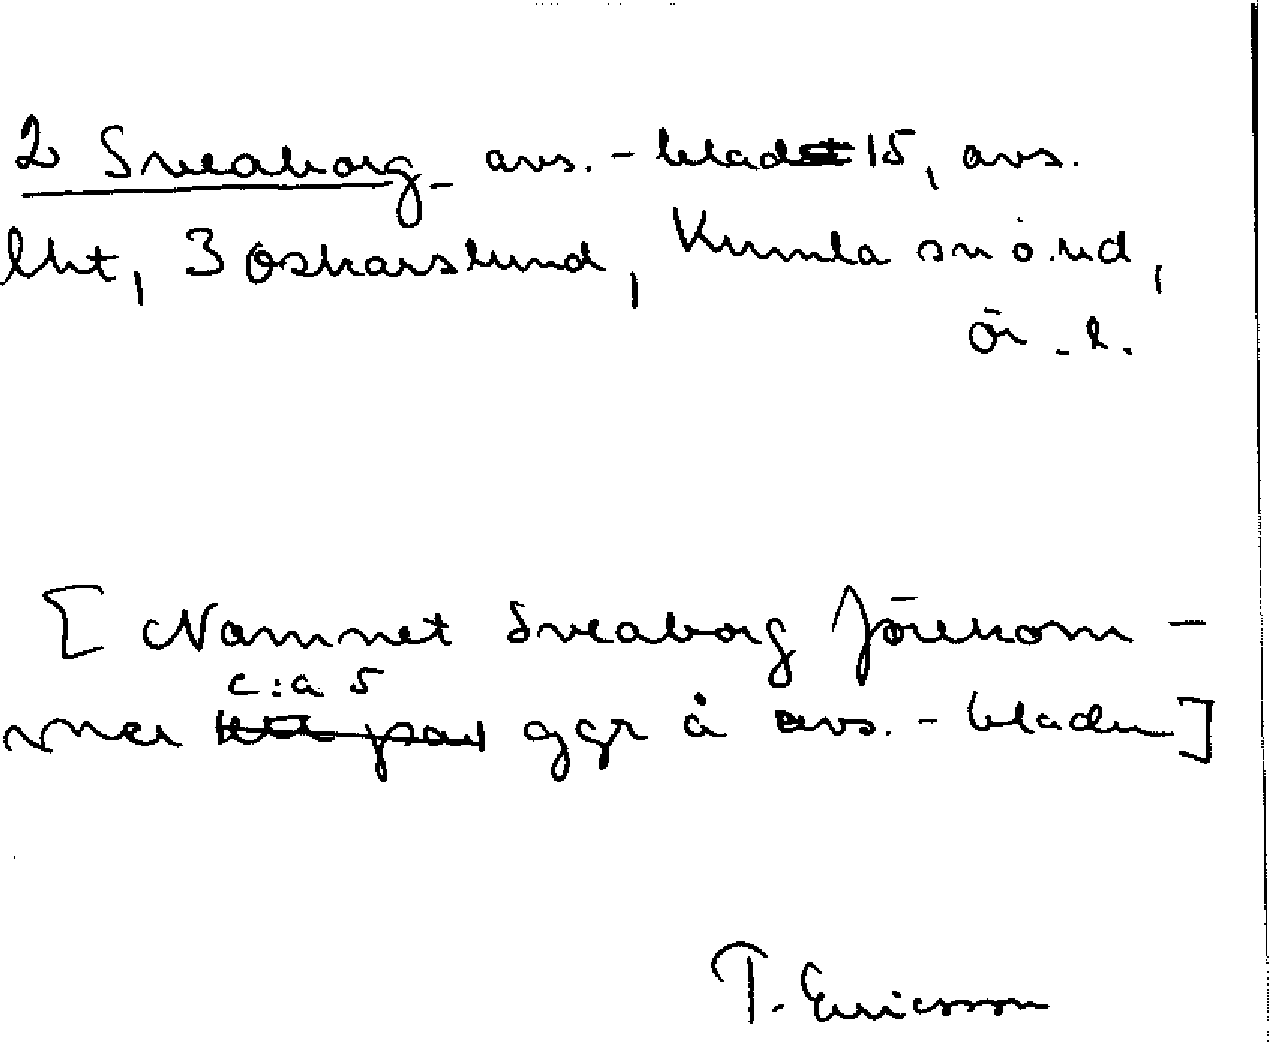 2 Sveaborg avs. - blad 15, avs.
lht, 3 Oskarslund, Kumla sn ö.nd,
Ör. l.
[Namnet Sveaborg förekom-
c:a 5
mer ggr å avs. - bladen]
T. Ericsson